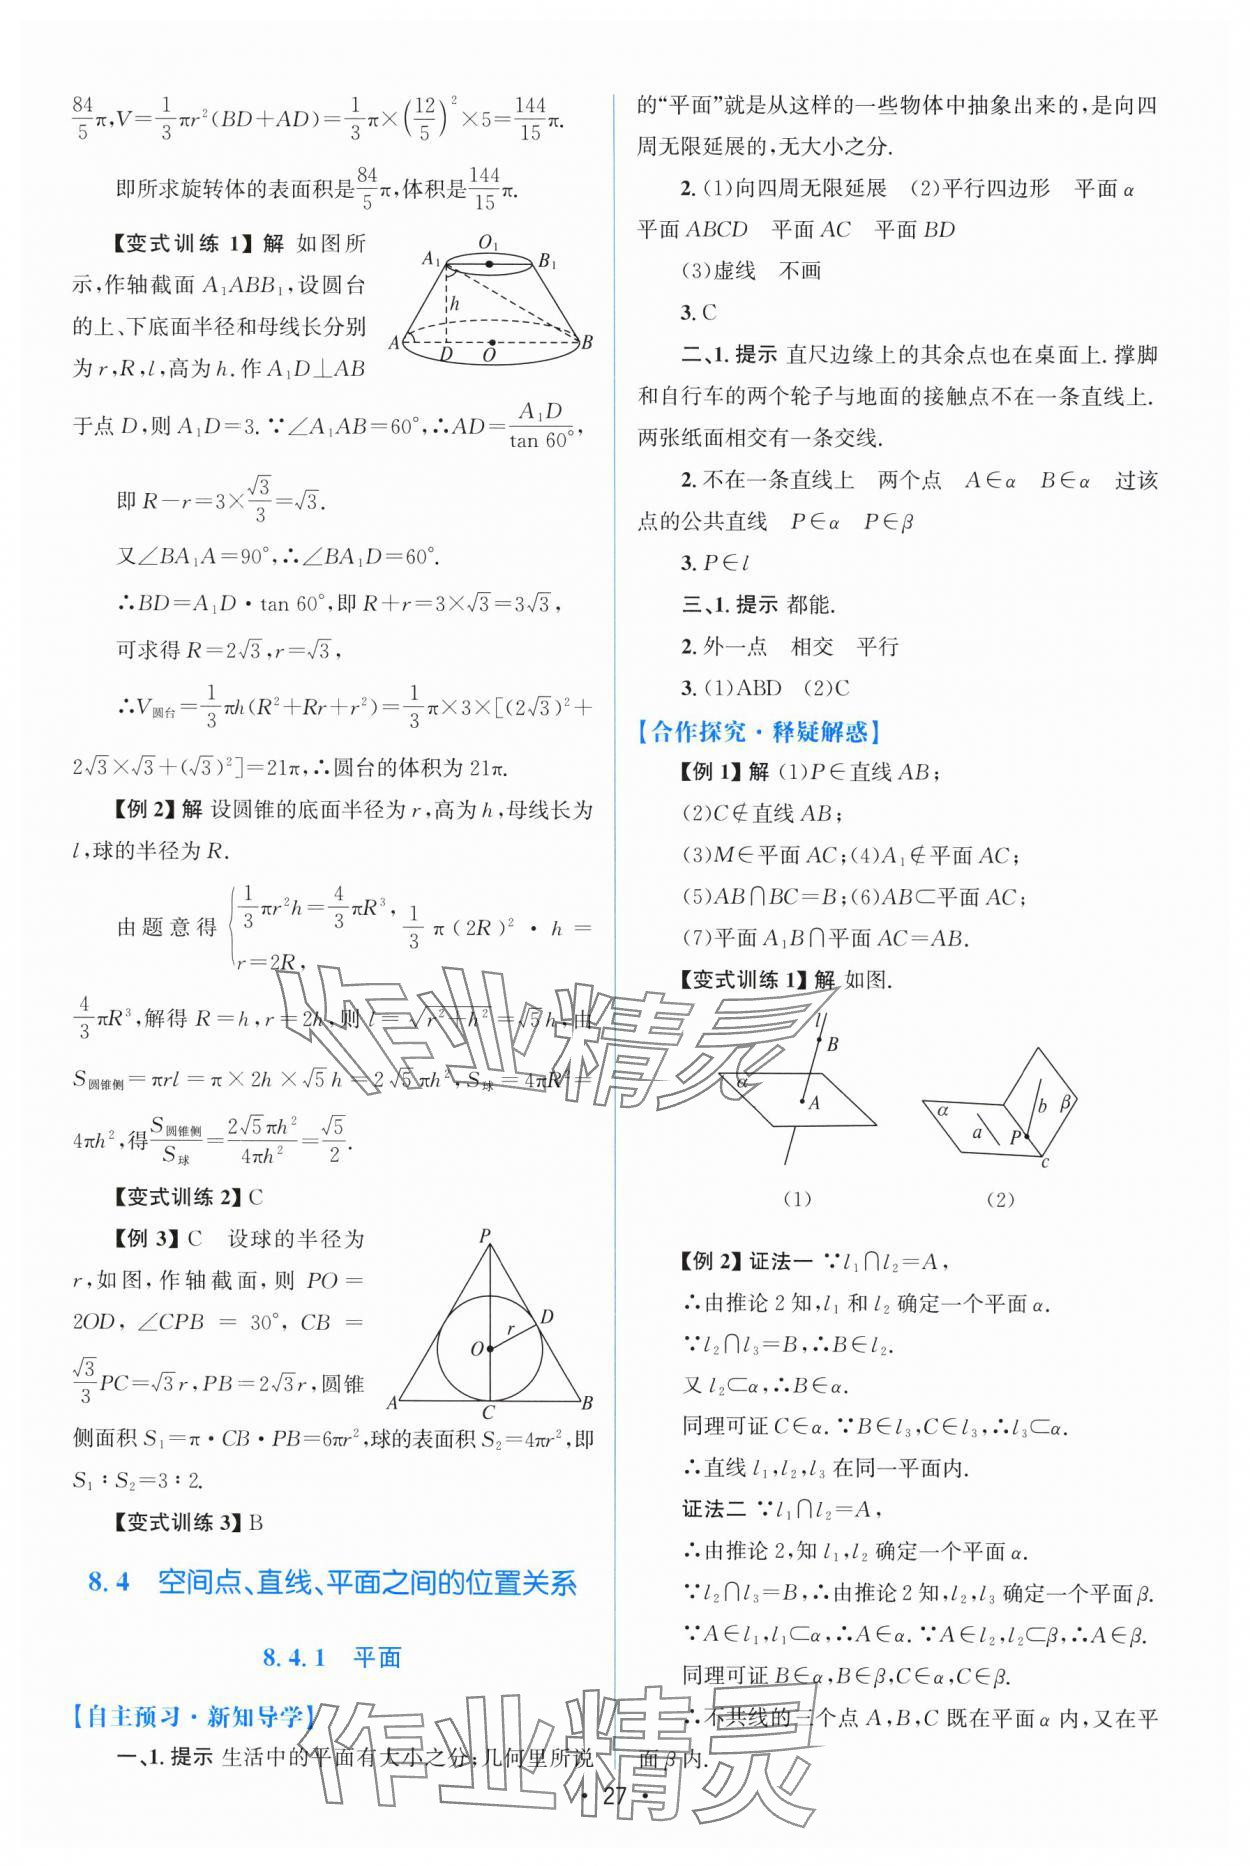 84/5π,V=1/3πr²(BD+AD)=1/3π×(12/5)²×5=144/15π.
即所求旋转体的表面积是84/5π,体积是144/15π.
【变式训练1】解 如图所
示,作轴截面 A₁ABB₁,设圆台
的上、下底面半径和母线长分别
为 r,R,l,高为 h.作 A₁D⊥AB
于点 D,则 A₁D=3.∵∠A₁AB=60°,∴AD=A₁D/tan 60°,
A₁ O₁ B₁ h A D O B
即 R-r=3×√3/3=√3.
又∠BA₁A=90°,∴∠BA₁D=60°.
∴BD=A₁D·tan 60°,即 R+r=3×√3=3√3,
可求得 R=2√3,r=√3,
∴V圆台=1/3πh(R²+Rr+r²)=1/3π×3×[(2√3)²+
2√3×√3+(√3)²]=21π,∴圆台的体积为 21π.
【例 2】解 设圆锥的底面半径为 r,高为 h,母线长为
l,球的半径为 R.
由题意得{1/3πr²h=4/3πR³, r=2R, 1/3π(2R)²·h=
4/3πR³,解得 R=h,r=2h,则 l=√(r²+h²)=√5h,由
S圆锥侧=πrl=π×2h×√5h=2√5πh²,S球=4πR²=
4πh²,得S圆锥侧/S球=2√5πh²/4πh²=√5/2.
【变式训练 2】C
【例 3】C 设球的半径为
r,如图,作轴截面,则 PO=
2OD,∠CPB=30°,CB=
√3/3PC=√3r,PB=2√3r,圆锥
P D r O A C B
侧面积 S₁=π·CB·PB=6πr²,球的表面积 S₂=4πr²,即
S₁∶S₂=3∶2.
【变式训练 3】B
8.4 空间点、直线、平面之间的位置关系
8.4.1 平面
【自主预习·新知导学】
一、1.提示 生活中的平面有大小之分;几何里所说
的“平面”就是从这样的一些物体中抽象出来的,是向四
周无限延展的,无大小之分.
2.(1)向四周无限延展 (2)平行四边形 平面 α
平面 ABCD 平面 AC 平面 BD
(3)虚线 不画
3.C
二、1.提示 直尺边缘上的其余点也在桌面上.撑脚
和自行车的两个轮子与地面的接触点不在一条直线上.
两张纸面相交有一条交线.
2.不在一条直线上 两个点 A∈α B∈α 过该
点的公共直线 P∈α P∈β
3.P∈l
三、1.提示 都能.
2.外一点 相交 平行
3.(1)ABD (2)C
【合作探究·释疑解惑】
【例 1】解 (1)P∈直线 AB;
(2)C∉直线 AB;
(3)M∈平面 AC;(4)A₁∉平面 AC;
(5)AB∩BC=B;(6)AB⊂平面 AC;
(7)平面 A₁B∩平面 AC=AB.
【变式训练 1】解 如图.
l B α A
α a P b β c
(1) (2)
【例 2】证法一 ∵l₁∩l₂=A,
∴由推论 2 知,l₁ 和 l₂ 确定一个平面 α.
∵l₂∩l₃=B,∴B∈l₂.
又 l₂⊂α,∴B∈α.
同理可证 C∈α.∵B∈l₃,C∈l₃,∴l₃⊂α.
∴直线 l₁,l₂,l₃ 在同一平面内.
证法二 ∵l₁∩l₂=A,
∴由推论 2,知 l₁,l₂ 确定一个平面 α.
∵l₂∩l₃=B,∴由推论 2 知,l₂,l₃ 确定一个平面 β.
∵A∈l₁,l₁⊂α,∴A∈α.∵A∈l₂,l₂⊂β,∴A∈β.
同理可证 B∈α,B∈β,C∈α,C∈β.
∴不共线的三个点 A,B,C 既在平面 α 内,又在平
面 β 内.
·27·
作业精灵
作业精灵